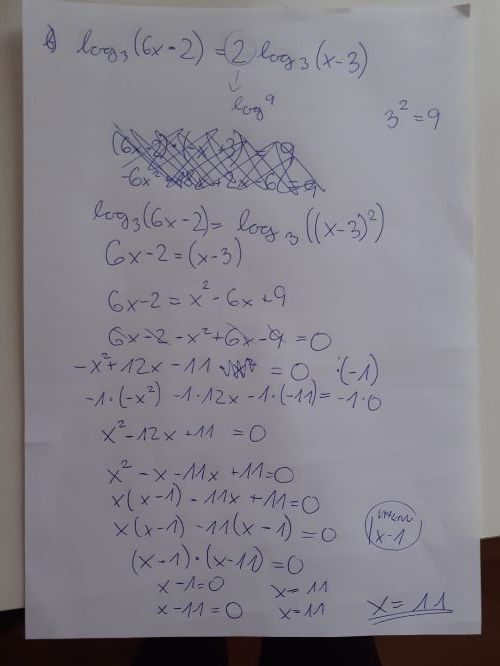 log₃(6x-2) = 2 log₃(x-3)
log⁹
3² = 9
log₃(6x-2) = log₃((x-3)²)
6x-2 = (x-3)
6x-2 = x² - 6x + 9
6x - 2 - x² + 6x - 9 = 0
-x² + 12x - 11 = 0 ·(-1)
-1·(-x²) -1·12x -1·(-11) = -1·0
x² - 12x + 11 = 0
x² - x - 11x + 11 = 0
x(x-1) - 11x + 11 = 0
x(x-1) - 11(x-1) = 0
x-1
(x-1)·(x-11) = 0
x-1=0 x=11
x-11=0 x=11
x = 11